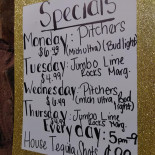 Specials
Monday: Pitchers
$6.99 (Mich Ultra) (Bud light)
Tuesday: Jumbo Lime
$4.99! Rocks Marg.
Wednesday: Pitchers
$6.99 (Mich Ultra, Bud light)
Thursday: Jumbo Lime
$4.99 Rocks Marg.
Everyday: 5pm-9
House Tequila Shots